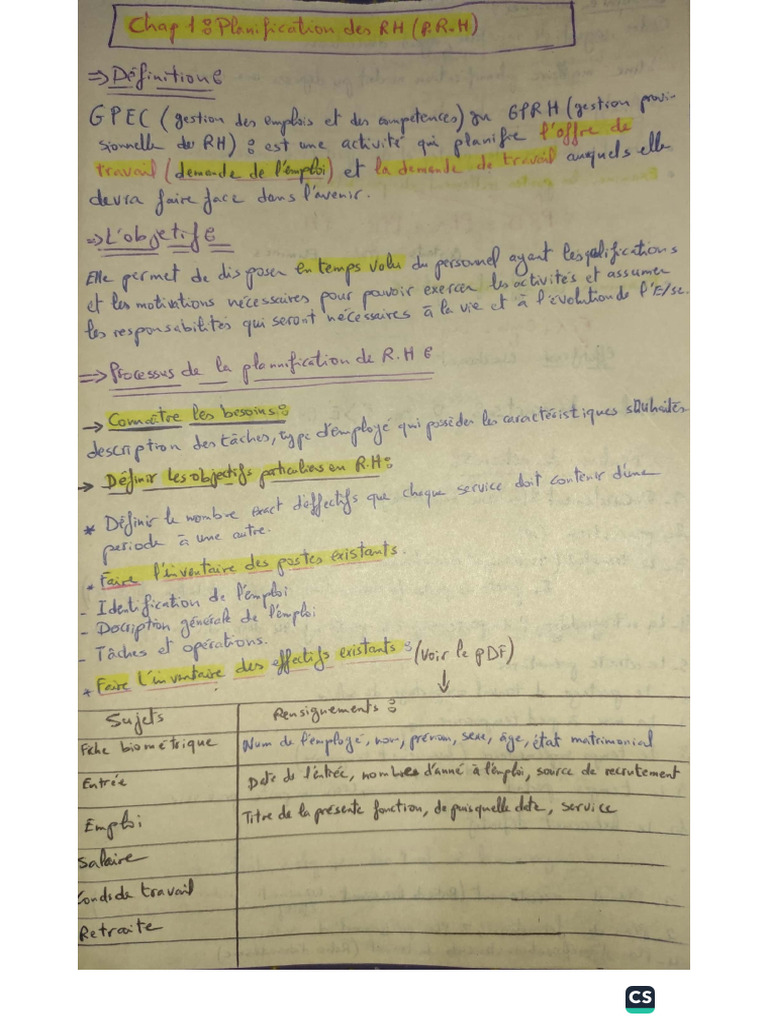 Chap 1 : Planification des RH (P.R.H)
⇒ Définition :
GPEC (gestion des emplois et des competences) ou GPRH (gestion provi-
sionnelle des RH) : est une activité qui planifie l'offre de
travail (demande de l'emploi) et la demande de travail auxquels elle
devra faire face dans l'avenir.
⇒ L'objetif :
Elle permet de disposer en temps volu du personnel ayant les qalifications
et les motivations nécessaires pour pouvoir exercer les activités et assumer
les responsabilités qui seront nécessaires à la vie et à l'évolution de l'E/se.
⇒ Processus de la plannification de R.H :
→ Connaître les besoins :
description des tâches, type d'employé qui possèder les caractéristiques souhaités
→ Définir les objectifs particuliers en R.H :
* Définir le nombre exact d'effectifs que chaque service doit contenir d'une
periode à une autre.
* Faire l'inventaire des postes existants.
- Identification de l'emploi
- Description générale de l'emploi
- Tâches et opérations.
* Faire l'inventaire des effectifs existants : (voir le PDF)
Sujets Rensignements :
Fiche biométrique Num de l'employé, nom, prénom, sexe, âge, état matrimonial
Entrée Date de l'entrée, nombres d'anné à l'emploi, source de recrutement
Emploi Titre de la présente fonction, depuis quelle date, service
Salaire
Conds de travail
Retraite
CS